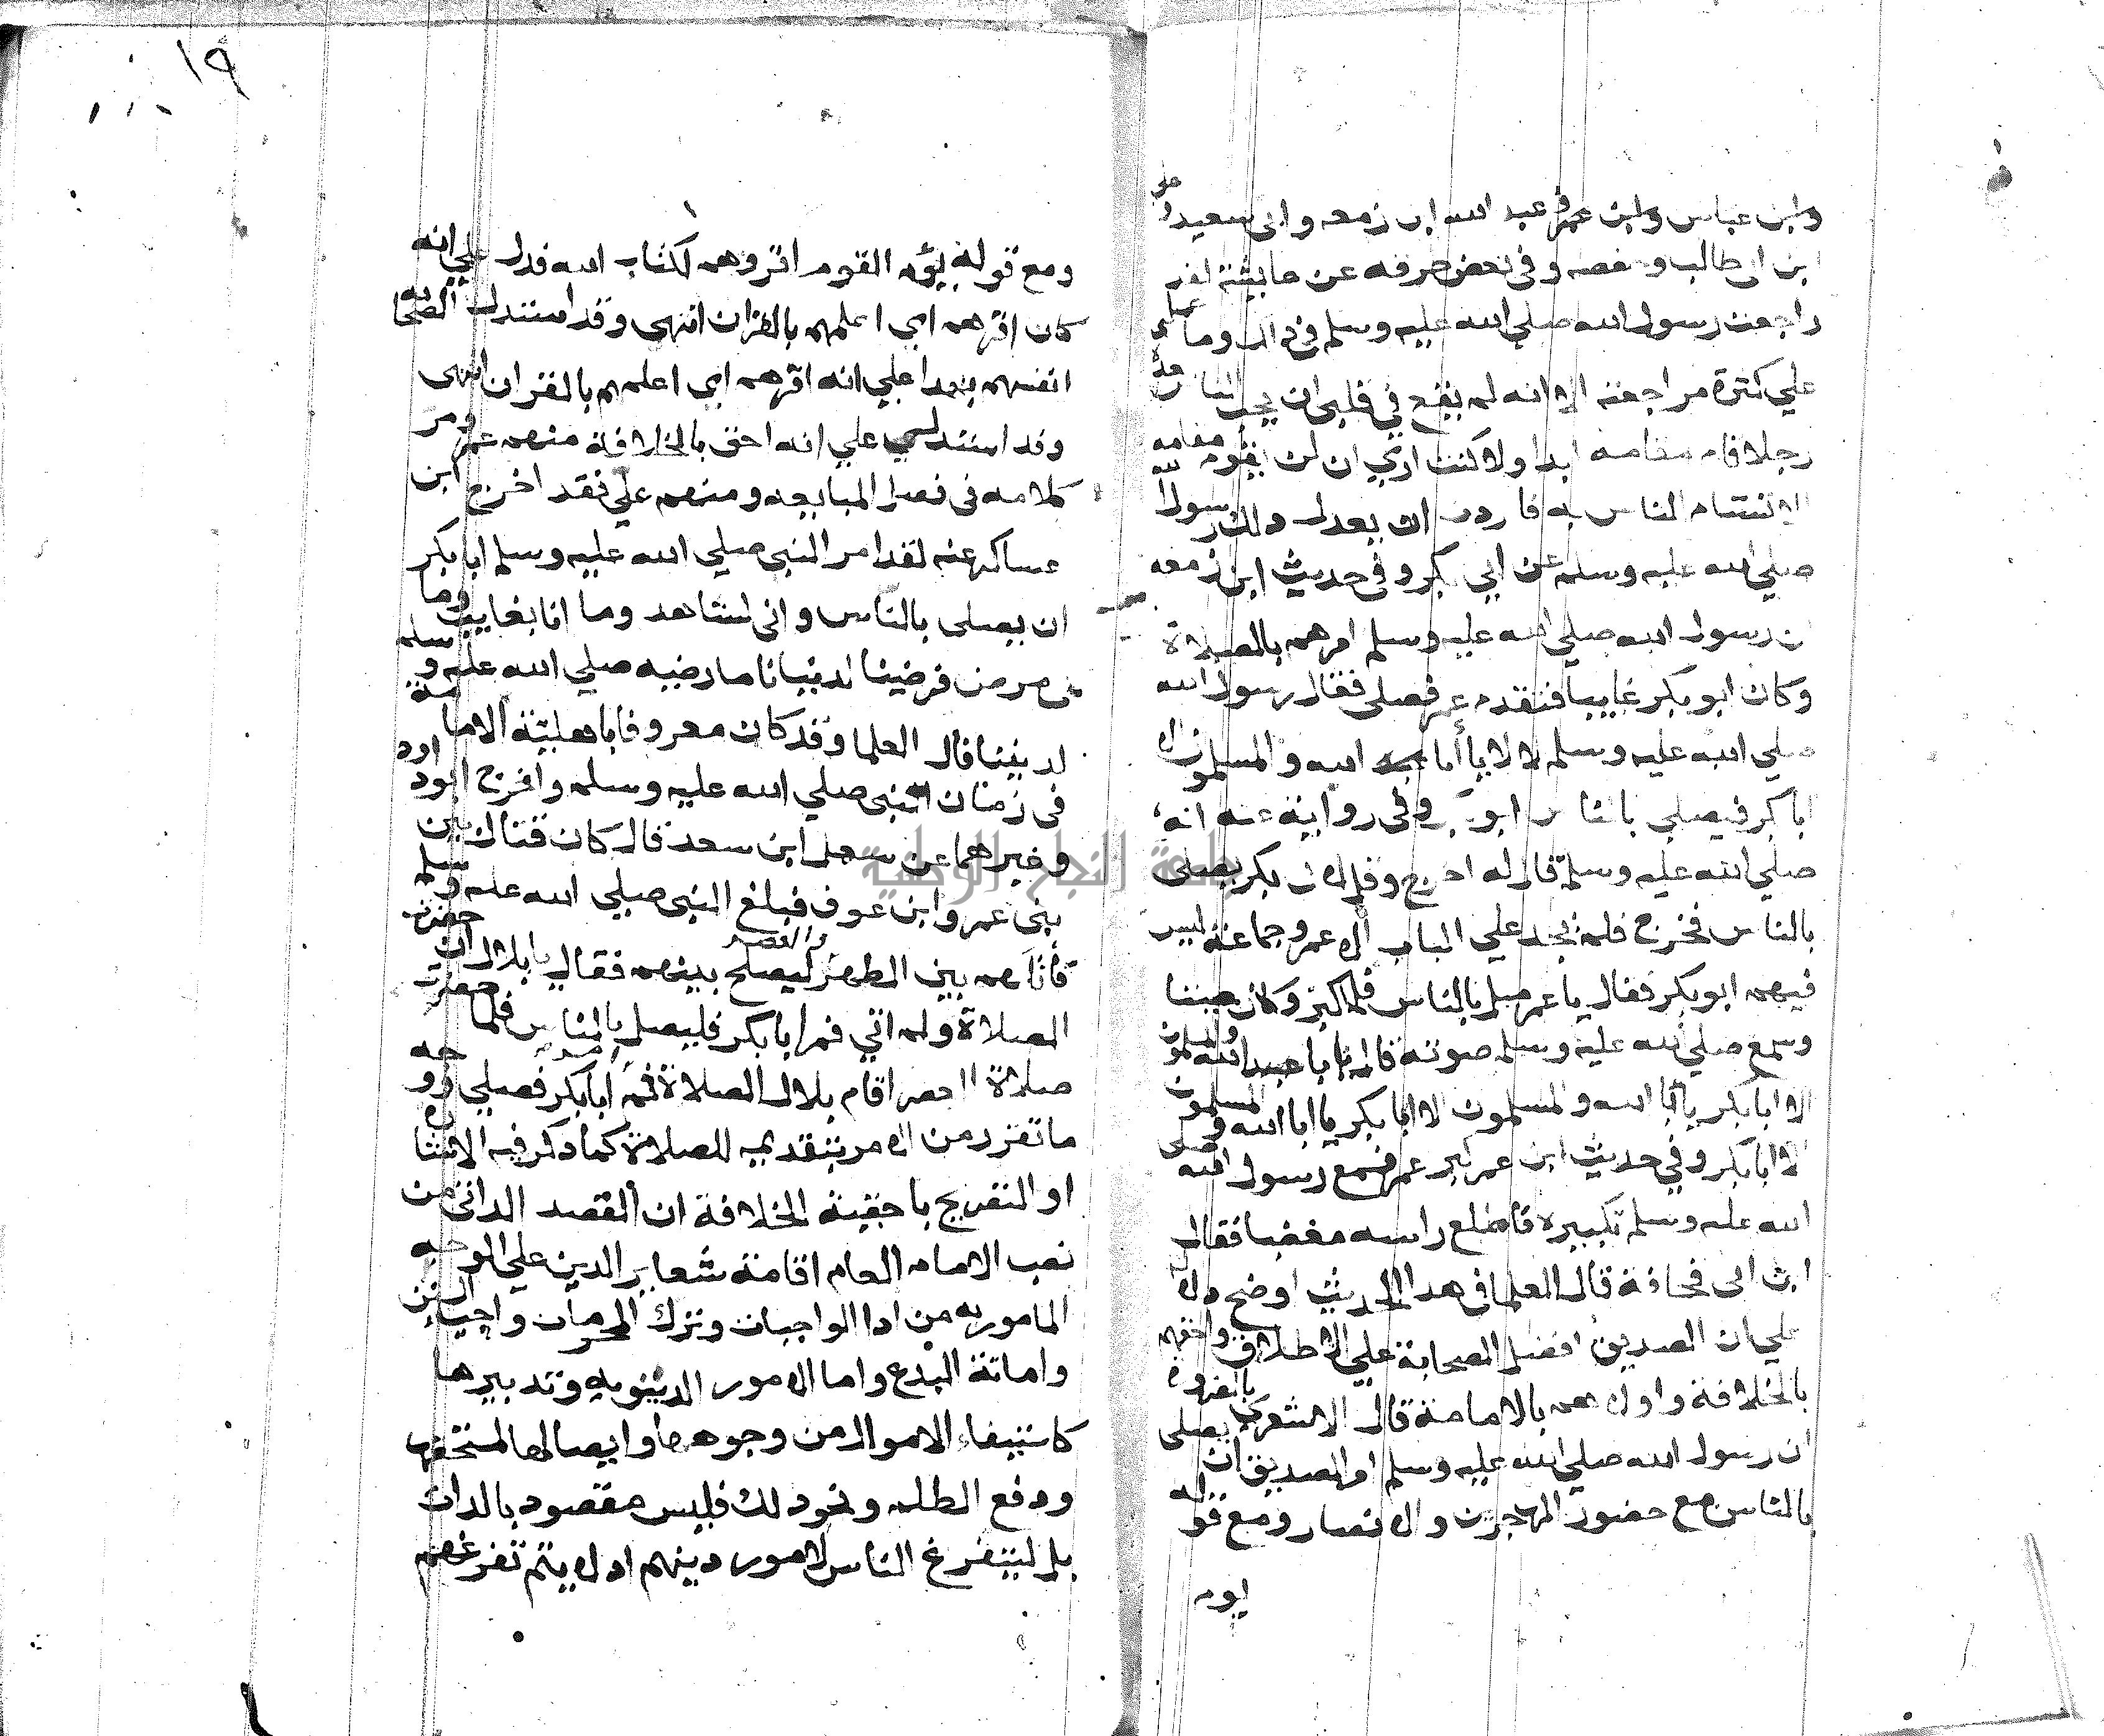 وابن عباس وابن عمر وعبد الله ابن زمعه وابى سعيد وعلى
ابن ابى طالب وحفصه وفى بعض طرقه عن عايشة لقد
راجعت رسول الله صلي الله عليه وسلم فى ذالك وما حملنى
علي كثرة مراجعته الا انه لم يقع في قلبى ان يحب الناس بعده
رجلا قام مقامه ابدا ولا كنت اري ان لن يقوم مقامه
الا تشام الناس به فاردت ان يعدل ذلك رسول الله
صلي الله عليه وسلم عن ابي بكر وفى حديث ابن زمعه
ان رسول الله صلي الله عليه وسلم امرهم بالصلاة
وكان ابو بكر غايبا فتقدم عمر فصلى فقال رسول الله
صلي الله عليه وسلم لا لا يأبا الله والمسلمون الا
ابا بكر فيصلي بالناس ابو بكر وفى رواية عنه انه
صلي الله عليه وسلم قال له اخرج وقل لابى بكر يصلى
بالناس فخرج فلم يجد علي الباب الا عمر وجماعة ليس
فيهم ابو بكر فقال يا عمر صل بالناس فلما كبر وكان صيتا
وسمع صلي الله عليه وسلم صوته قال يابا الله والمسلمون
الا ابا بكر يأبا الله والمسلمون الا ابا بكر يأبا الله والمسلمون
الا ابا بكر وفي حديث ابن عمر كبر عمر فسمع رسول الله صلى
الله عليه وسلم تكبيره فاطلع راسه مغضبا فقال
ابن ابى قحافة قال العلما فى هدا الحديث اوضح دلالة
علي ان الصديق افضل الصحابة علي الاطلاق واحقهم
بالخلافة واولاهم بالامامة قال الاشعرى بالضرورة
ان رسول الله صلي الله عليه وسلم امر الصديق ان يصلى
بالناس مع حضور المهجرين والانصار ومع قوله
يوم
١٩
ومع قوله يؤم القوم اقروهم لكتاب الله فدل علي انه
كان اقرهم اي اعلمهم بالقران انتهى وقد استدل الصحابه
انفسهم بهدا علي انه اقرهم اي اعلمهم بالقران انتهى
وقد استدل علي انه احق بالخلافة منهم عمر ومر
كلامه فى فصل المبايعه ومنهم علي فقد اخرج ابن
عساكر عنه لقد امر النبى صلي الله عليه وسلم ابا بكر
ان يصلى بالناس وانى لشاهد وما انا بغايب وما
بى مرض فرضينا لدنيانا ما رضيه صلي الله عليه وسلم
لديننا قال العلما وقد كان معروفا باهلية الامامة
فى زمان النبى صلي الله عليه وسلم واخرج ابو داود
وغيرهما عن سهل ابن سعد قال كان قتال بين
بنى عمرو ابن عوف فبلغ النبى صلي الله عليه وسلم
فأتاهم بين الطهر والعصر ليصلح بينهم فقال يا بلال ان حضرت
الصلاة ولم اتي فمر ابا بكر فليصل بالناس فلما حضرت
صلاة العصر اقام بلال الصلاة ثم امر ابا بكر فصلي ووجه
ما تقرر من الامر بتقديمه للصلاة كما ذكر فيه الاشارة
او التصريح باحقية الخلافة ان القصد الداتى من
نصب الامام العام اقامة شعاير الدين علي الوجه
المامور به من ادا الواجبات وترك المحرمات واحيا السنن
واماتة البدع واما الامور الدنيويه وتدبيرها
كاستيفاء الاموال من وجوهها وايصالها لمستحقيها
ودفع الطلم ونحو دلك فليس مقصود بالدات
بل ليتفرغ الناس لامور دينهم اد لا يتم تفرغهم
جامعة النجاح الوطنية